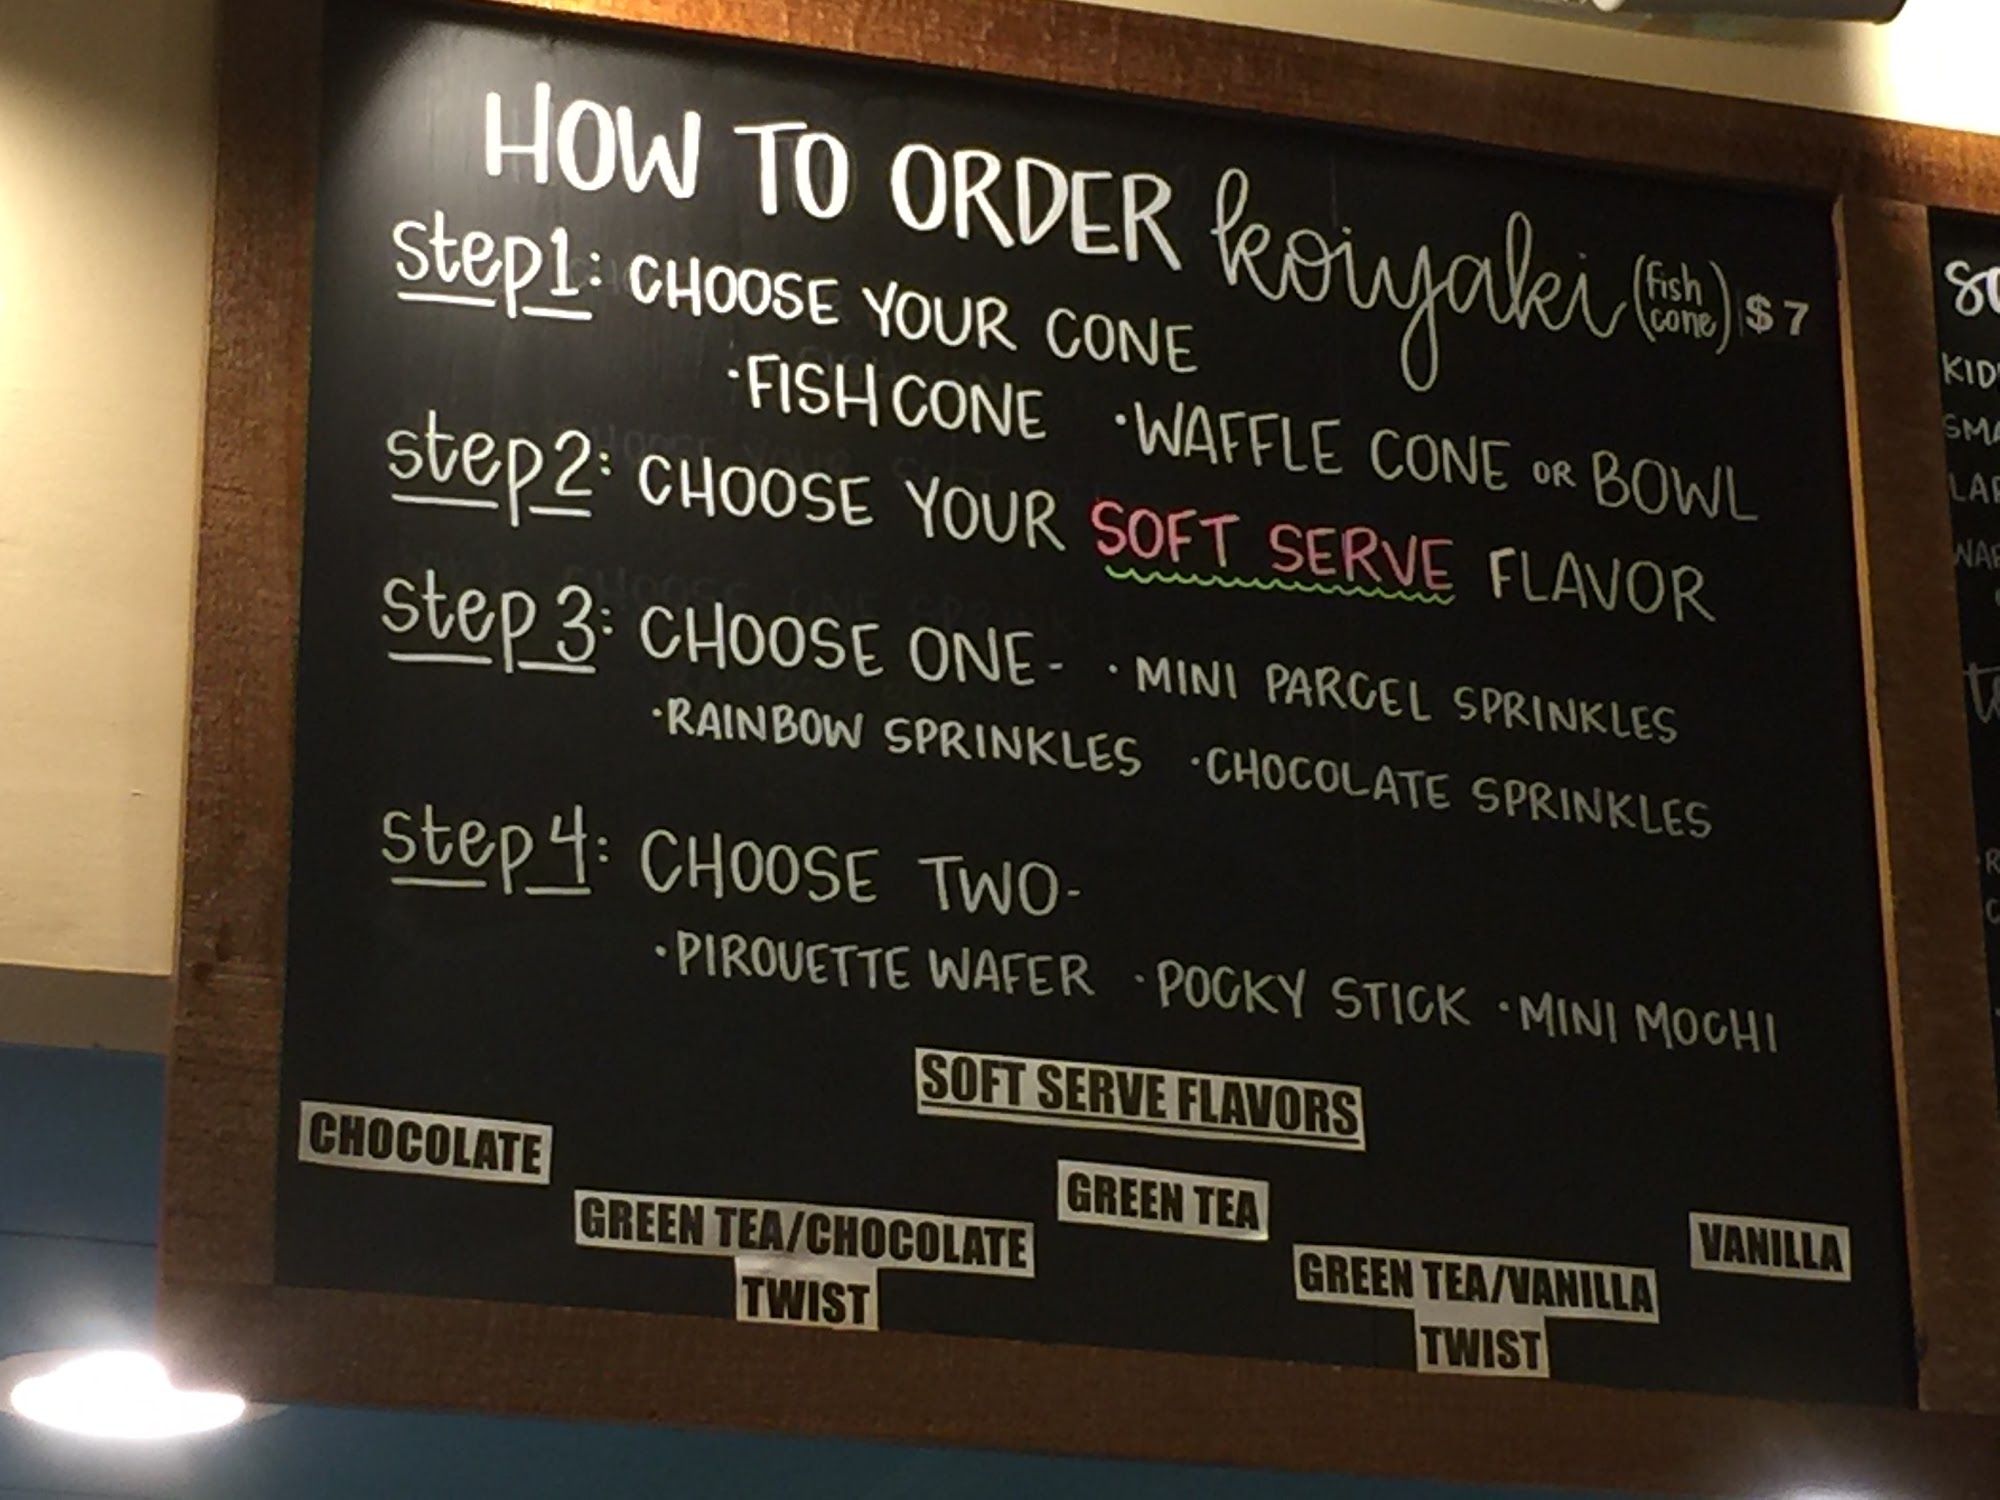 HOW TO ORDER koiyaki (fish cone) $7
step1: CHOOSE YOUR CONE
·FISH CONE ·WAFFLE CONE OR BOWL
step2: CHOOSE YOUR SOFT SERVE FLAVOR
step 3: CHOOSE ONE- ·MINI PARCEL SPRINKLES
·RAINBOW SPRINKLES ·CHOCOLATE SPRINKLES
step4: CHOOSE TWO-
·PIROUETTE WAFER ·POCKY STICK ·MINI MOCHI
SOFT SERVE FLAVORS
CHOCOLATE
GREEN TEA/CHOCOLATE
TWIST
GREEN TEA
GREEN TEA/VANILLA
TWIST
VANILLA